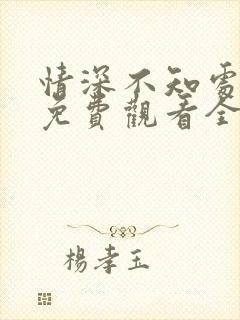 情深不知處
免費觀看全
楊孝玉